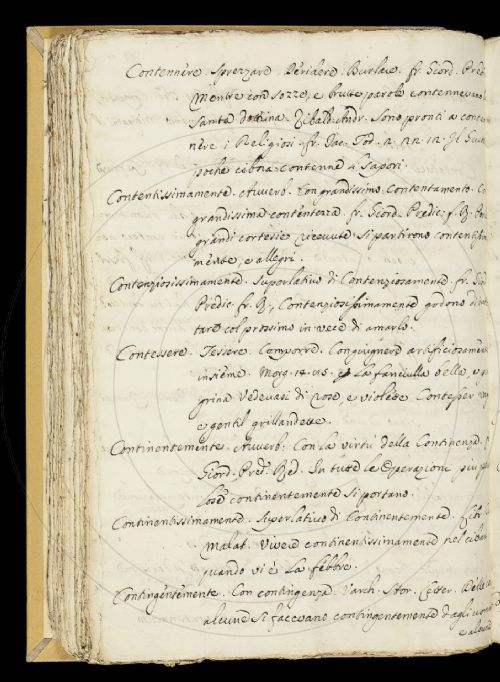 Contennere. Sprezzare. Deridere. Burlare. fr. Giord. Pred.
Mentre con sozze, e brute parole contennevano
Santa dottrina. Zibald. Andr. Sono pronti a conten
nère i Religiosi. fr. Iac. Tod. 2. 12. Il
poche cibora contenne a Sapori.
Contentissimamente. Avverb. Con grandissimo Contentamento. Co
grandissima contentezza fr. Giord. Predic. f. B. Per
grandi cortesie ricevute si partirono contentissima
mente, e allegri.
Contenziosissimamente. Superlativo di Contenziosamente. fr. Giord
Predic. fr. B., Contenziosissimamente godono di
tare col prossimo in vece di amarlo.
Contessere. Tessere. Comporre. Congiugnere artificiosamen
insieme. Morg. 14. La fanciulla
Vedevasi di rose, e violette Contesser
e gentil grillandette.
Continentemente. Avverb. Con la virtù della Continenza.
Giord. Pred. Red. In tutte le operazioni più
continentemente si portano.
Continentissimamente. Superlativo di Continentemente.
Malat. Vivere continentissimamente nel cibar
quando vi è la febbre.
Contingentemente. Con contingenza. Varch. Stor. Delle
alcune si facevano contingentemente dagli uomin
e alcune